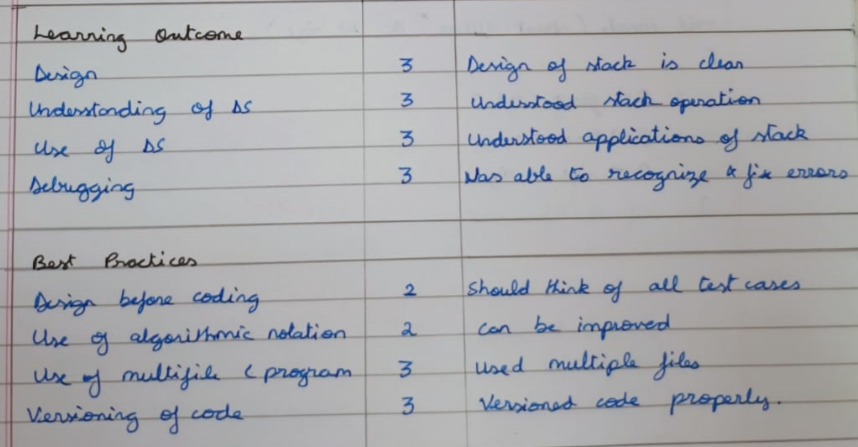 Learning Outcome
Design 3 Design of stack is clear
Understanding of DS 3 Understood stack operation
Use of DS 3 Understood applications of stack
Debugging 3 Was able to recognize & fix errors
Best Practices
Design before coding 2 Should think of all test cases
Use of algorithmic notation 2 can be improved
Use of multifile C program 3 Used multiple files
Versioning of code 3 Versioned code properly.